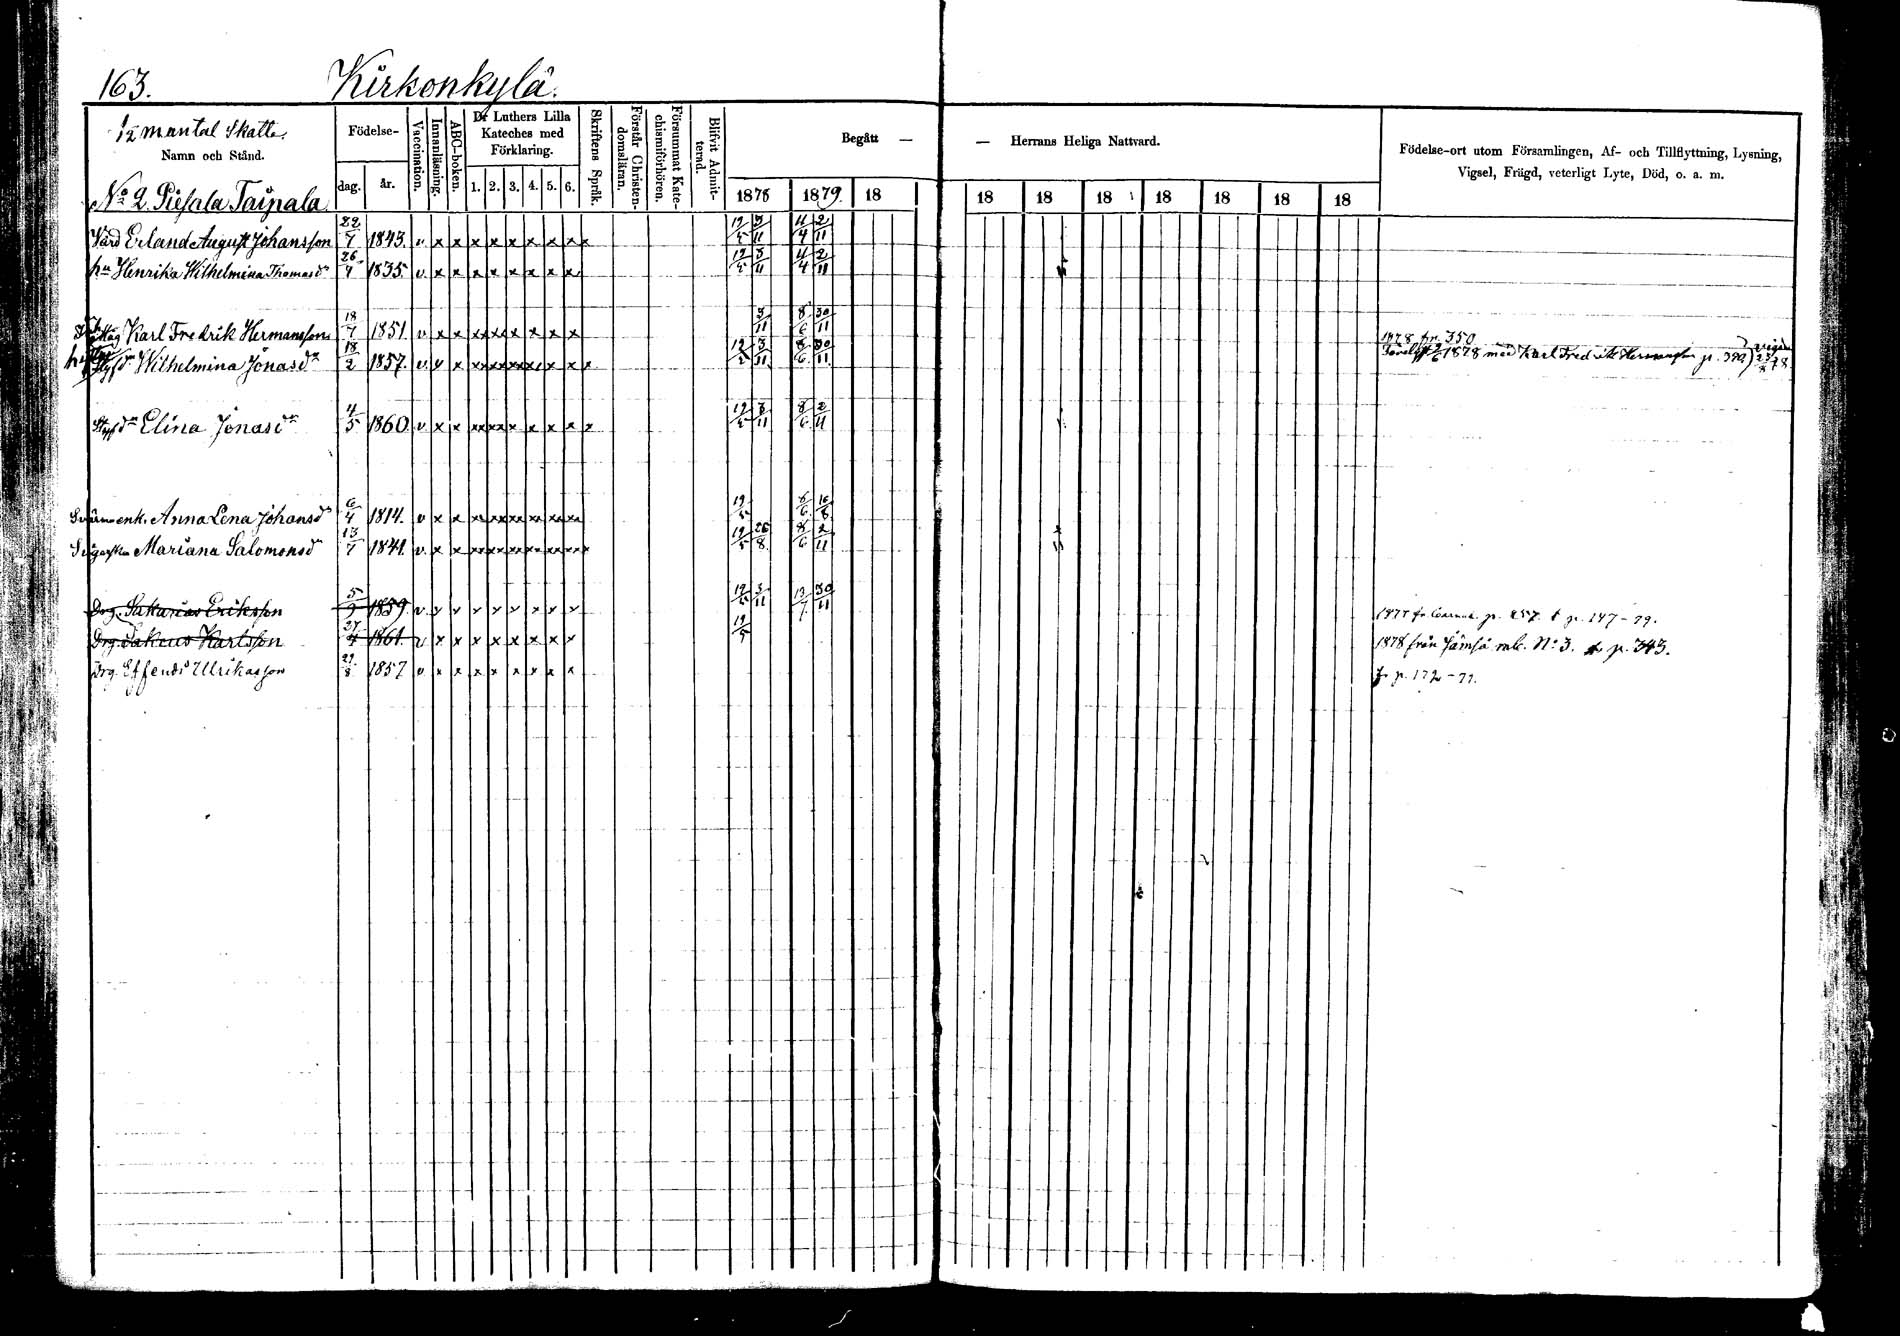 163. Kirkonkylä.
1/2 mantal Skatte.
Namn och Stånd.
Födelse-
dag. år.
Vaccination.
Innanläsning.
ABC-boken.
Dr Luthers Lilla Kateches med Förklaring.
1. 2. 3. 4. 5. 6.
Skriftens Språk.
Förstår Christendomsläran.
Försummat Katechismiförhören.
Blifvit Admitterad.
Begått — — Herrans Heliga Nattvard.
1878 1879. 18 18 18 18 18 18 18 18
Födelse-ort utom Församlingen, Af- och Tillflyttning, Lysning,
Vigsel, Frägd, veterligt Lyte, Död, o. a. m.
No 2 Piesala Taipala
Värd Erland August Johansson 22/7 1843. v x x x x x x x x x 19/5 3/11 4/4 2/11
hu Henrika Wilhelmina Thomasdr 26/4 1835. v x x x x x x x x 19/5 3/11 4/4 2/11
Karl Fredrik Hermansson 18/7 1851 v x x xx xx x x x x 3/11 8/6 30/11 1878 fr. 350
Wilhelmina Jonasdr 18/2 1857. v x x 8/6 30/11 1878 med Karl Fredrik Hermansson p.
Styfdr Elina Jonasdr 4/5 1860 v x x xx xx x x x x x 19/5 3/11 8/6 2/11
enk. Anna Lena Johansdr 6/4 1814. v x x 19/5 8/6
Mariana Salomonsdr 13/7 1841. v x x 19/5 26/8 8/6 2/11
Drg. Sakarias Eriksson 5/9 1859. v x x x x x x x x 19/5 3/11 13/7 30/11 p. 257. t p. 147-79.
Drg. Sakeus Karlsson 27/4 1861 v x x x x x x x x 19/5 1878 från Jämsä mb. No 3. p. 343.
Drg. Effendi Ulrikasson 29/8 1857 v x x x x x x x x fr p. 172-77.